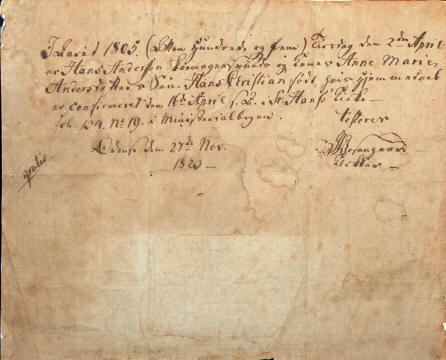 I Aaret 1805, (Atten Hundrede og fem) Tirsdag den 2den April
er Hans Andersen Skomagersvend og Kone Anne Marie
Andersdatters Søn, Hans Christian født, hvis Hjemmedaab
er confirmeret den 16de April s.A. i St Hans' Kirke
fol. 134. No 19. i Ministerialbogen.
testeres
Odense den 27de Nov.
1823
gratis